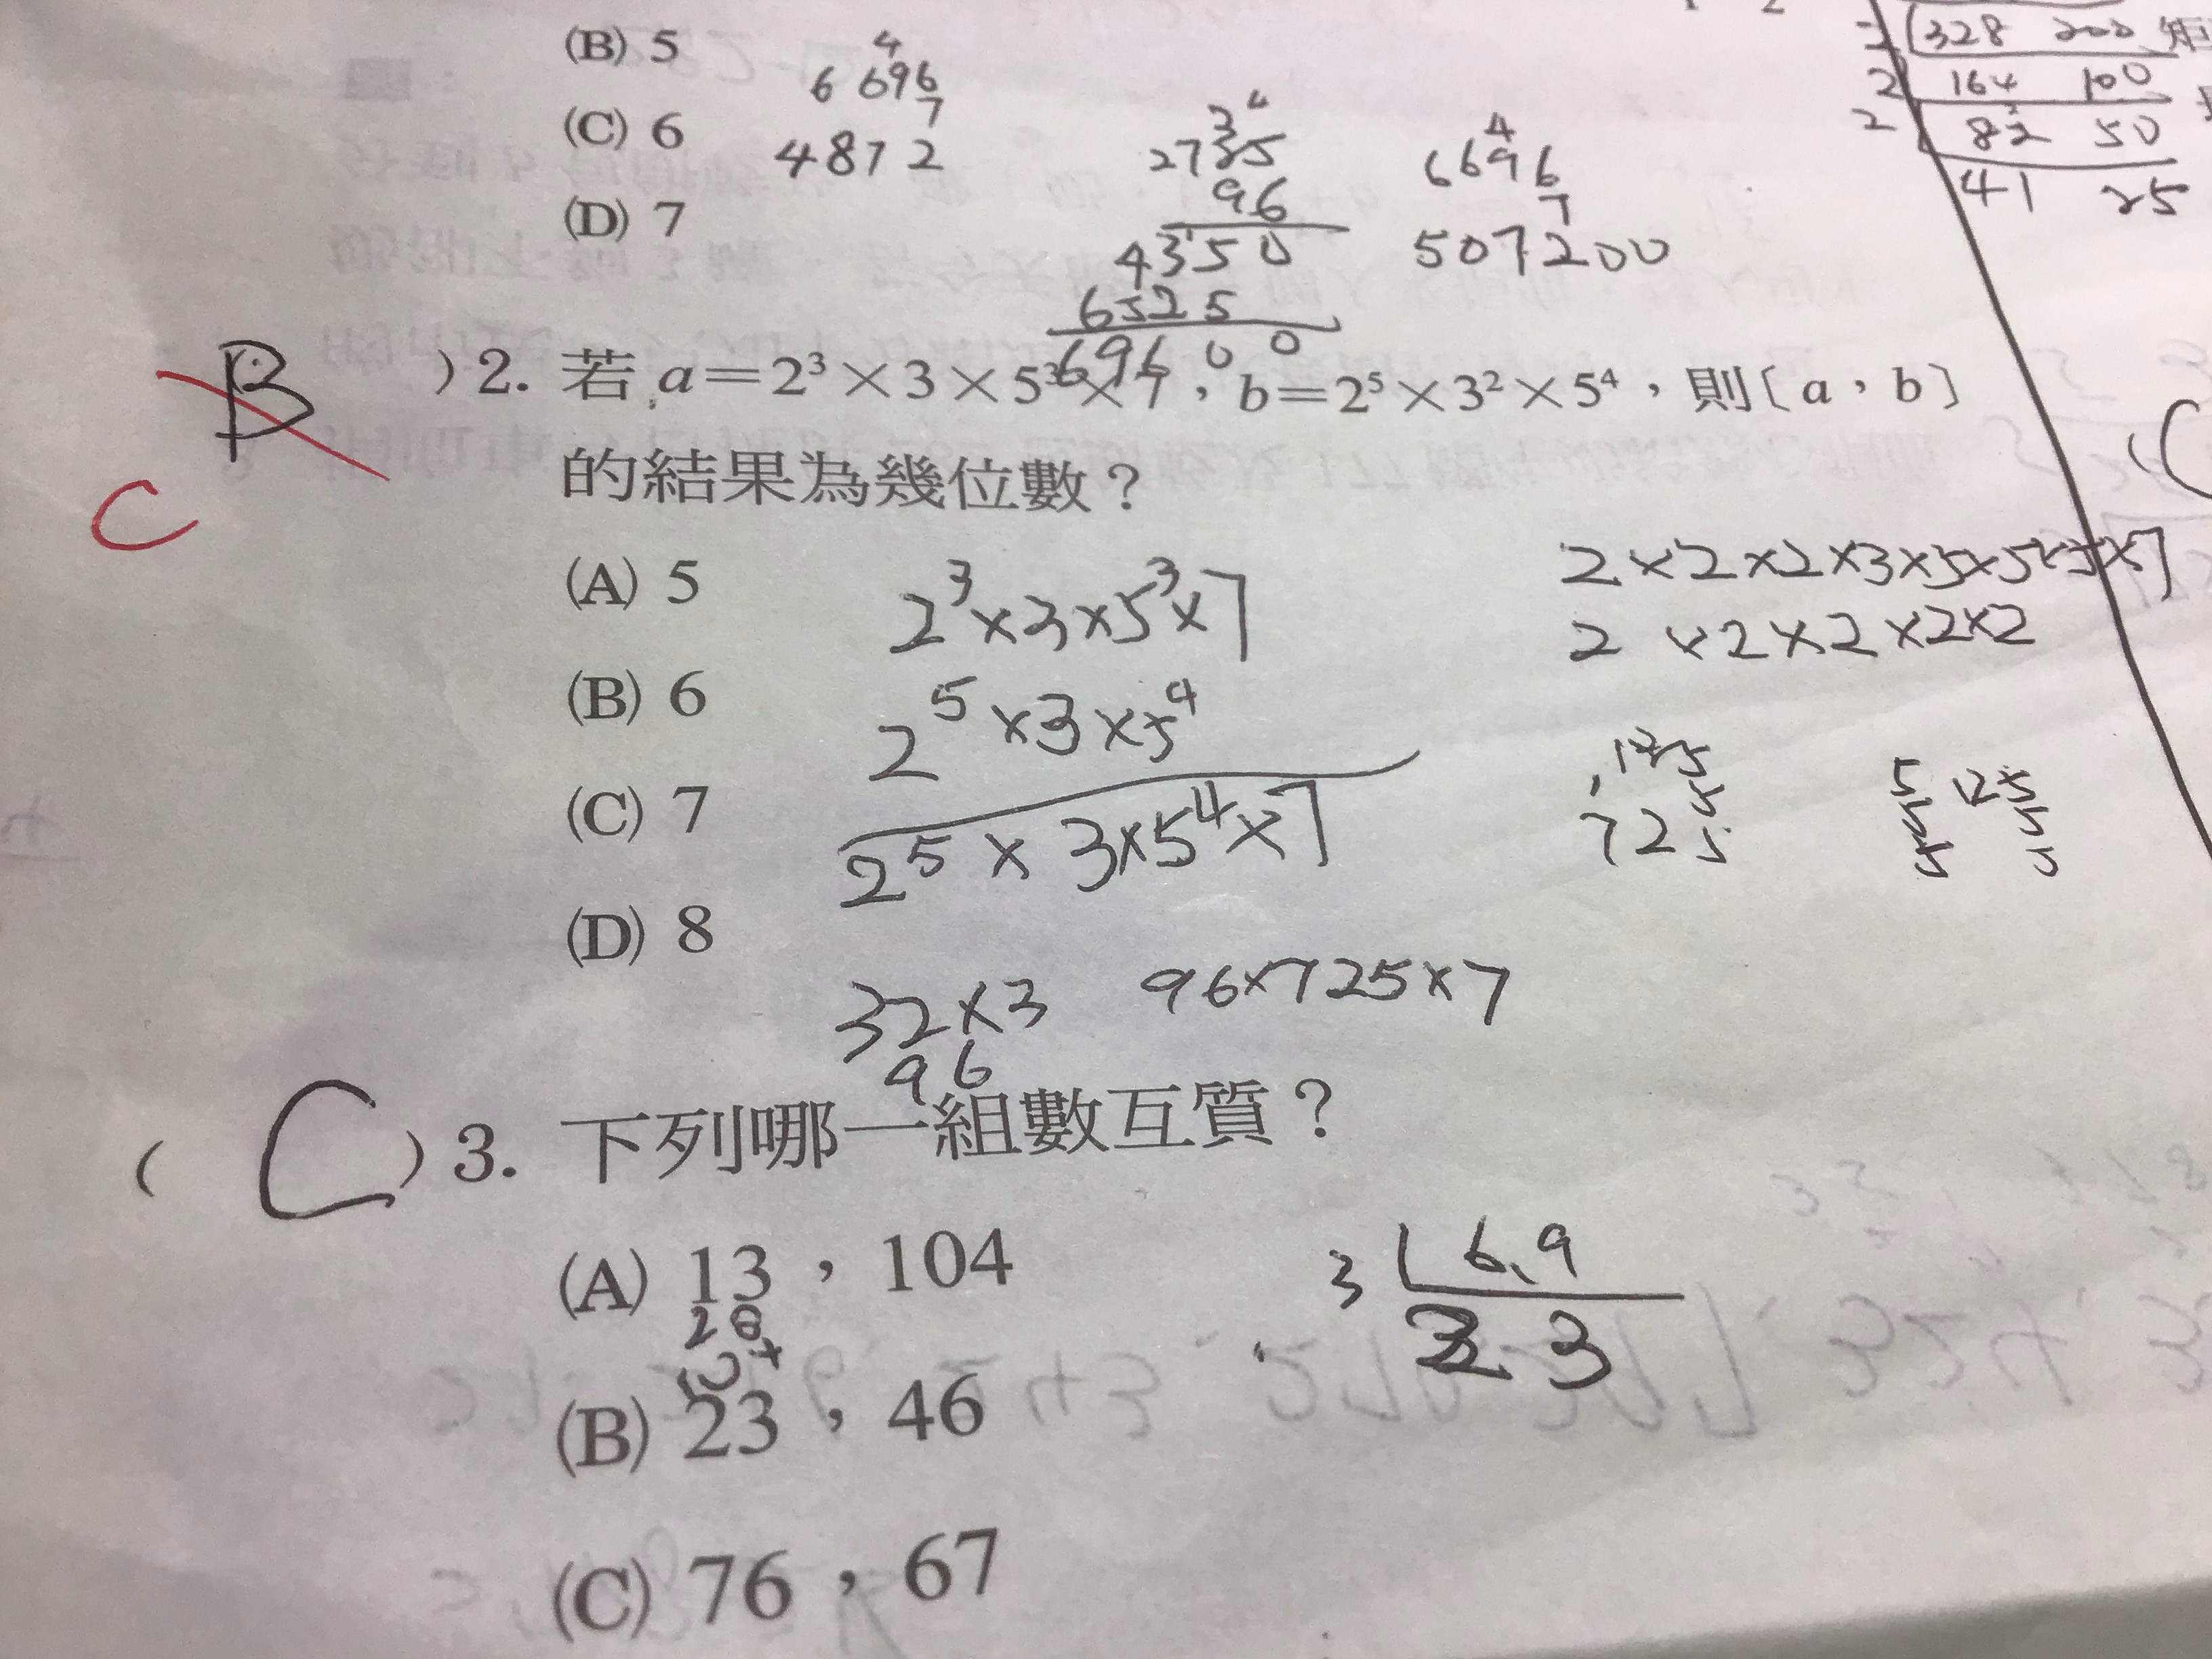 (B) 5
(C) 6
(D) 7
4
6 696
7
4872
96
4350
6525
69600
4
6696
7
507200
328 200
2 164 100
2 82 50
41 25
B
C
)2. 若 a=2³×3×5³×7，b=2⁵×3²×5⁴，則〔a，b〕
的結果為幾位數？
(A) 5
(B) 6
(C) 7
(D) 8
2³×3×5³×7
2⁵×3×5⁴
2⁵×3×5⁴×7
2×2×2×3×5×5×5×7
2×2×2×2×2
125
725
125
32×3
96
96×725×7
( C )3. 下列哪一組數互質？
(A) 13，104
(B) 23，46
(C) 76，67
3 6,9
2 3